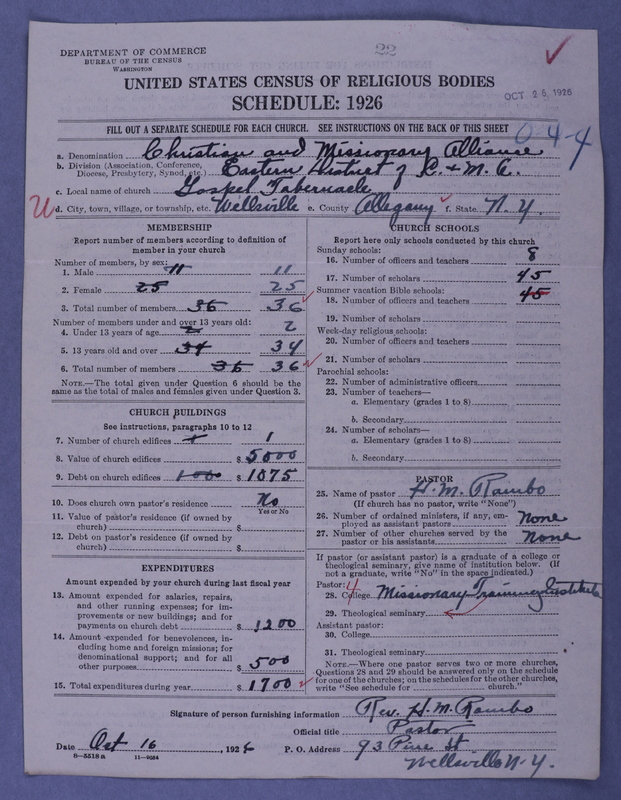 22
DEPARTMENT OF COMMERCE
BUREAU OF THE CENSUS
WASHINGTON
UNITED STATES CENSUS OF RELIGIOUS BODIES
SCHEDULE: 1926
OCT 25, 1926
FILL OUT A SEPARATE SCHEDULE FOR EACH CHURCH. SEE INSTRUCTIONS ON THE BACK OF THIS SHEET
0-4-4
a. Denomination Christian and Missionary Alliance
b. Division (Association, Conference, Diocese, Presbytery, Synod, etc.) Eastern District of C. & M. A.
c. Local name of church Gospel Tabernacle
U d. City, town, village, or township, etc. Wellsville e. County Allegany f. State N. Y.
MEMBERSHIP
Report number of members according to definition of
member in your church
Number of members, by sex:
1. Male 11 11
2. Female 25 25
3. Total number of members 36 36
Number of members under and over 13 years old:
4. Under 13 years of age 2 2
5. 13 years old and over 34 34
6. Total number of members 36 36
NOTE.—The total given under Question 6 should be
same as the total of males and females given under Question 3.
CHURCH BUILDINGS
See instructions, paragraphs 10 to 12
7. Number of church edifices 1 1
8. Value of church edifices $ 5000
9. Debt on church edifices 100 $ 1075
10. Does church own pastor's residence No
Yes or No
11. Value of pastor's residence (if owned by
church) $
12. Debt on pastor's residence (if owned by
church) $
EXPENDITURES
Amount expended by your church during last fiscal year
13. Amount expended for salaries, repairs,
and other running expenses; for im-
provements or new buildings; and for
payments on church debt $ 1200
14. Amount expended for benevolences, in-
cluding home and foreign missions; for
denominational support; and for all
other purposes $ 500
15. Total expenditures during year $ 1700
CHURCH SCHOOLS
Report here only schools conducted by this church
Sunday schools:
16. Number of officers and teachers 8
17. Number of scholars 45
Summer vacation Bible schools:
18. Number of officers and teachers 45
19. Number of scholars
Week-day religious schools:
20. Number of officers and teachers
21. Number of scholars
Parochial schools:
22. Number of administrative officers
23. Number of teachers—
a. Elementary (grades 1 to 8)
b. Secondary
24. Number of scholars—
a. Elementary (grades 1 to 8)
b. Secondary
PASTOR
25. Name of pastor H. M. Rambo
(If church has no pastor, write "None")
26. Number of ordained ministers, if any, em-
ployed as assistant pastors None
27. Number of other churches served by the
pastor or his assistants None
If pastor (or assistant pastor) is a graduate of a college or
theological seminary, give name of institution below. (If
not a graduate, write "No" in the space indicated.)
Pastor: 4
28. College Missionary Training Institute
29. Theological seminary
Assistant pastor:
30. College
31. Theological seminary
NOTE.—Where one pastor serves two or more churches,
Questions 28 and 29 should be answered only on the schedule
for one of the churches; on the schedules for the other churches,
write "See schedule for church."
Signature of person furnishing information Rev. H. M. Rambo
Official title Pastor
Date Oct 16, 1926 P. O. Address 93 Pine St
Wellsville N. Y.
8—5518a 11—9084